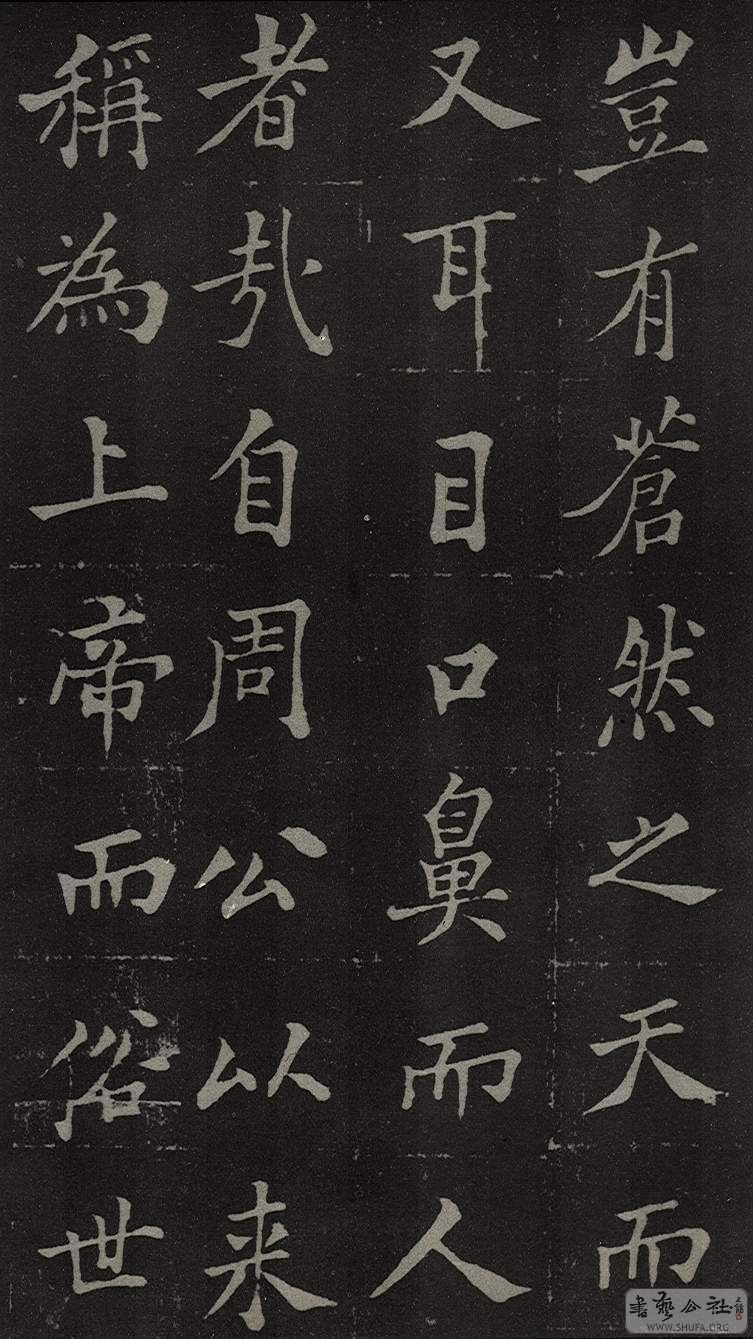 豈有蒼然之天而
又耳目口鼻而人
者哉自周公以来
稱為上帝而俗世
書藝公社
WWW.SHUFA.ORG